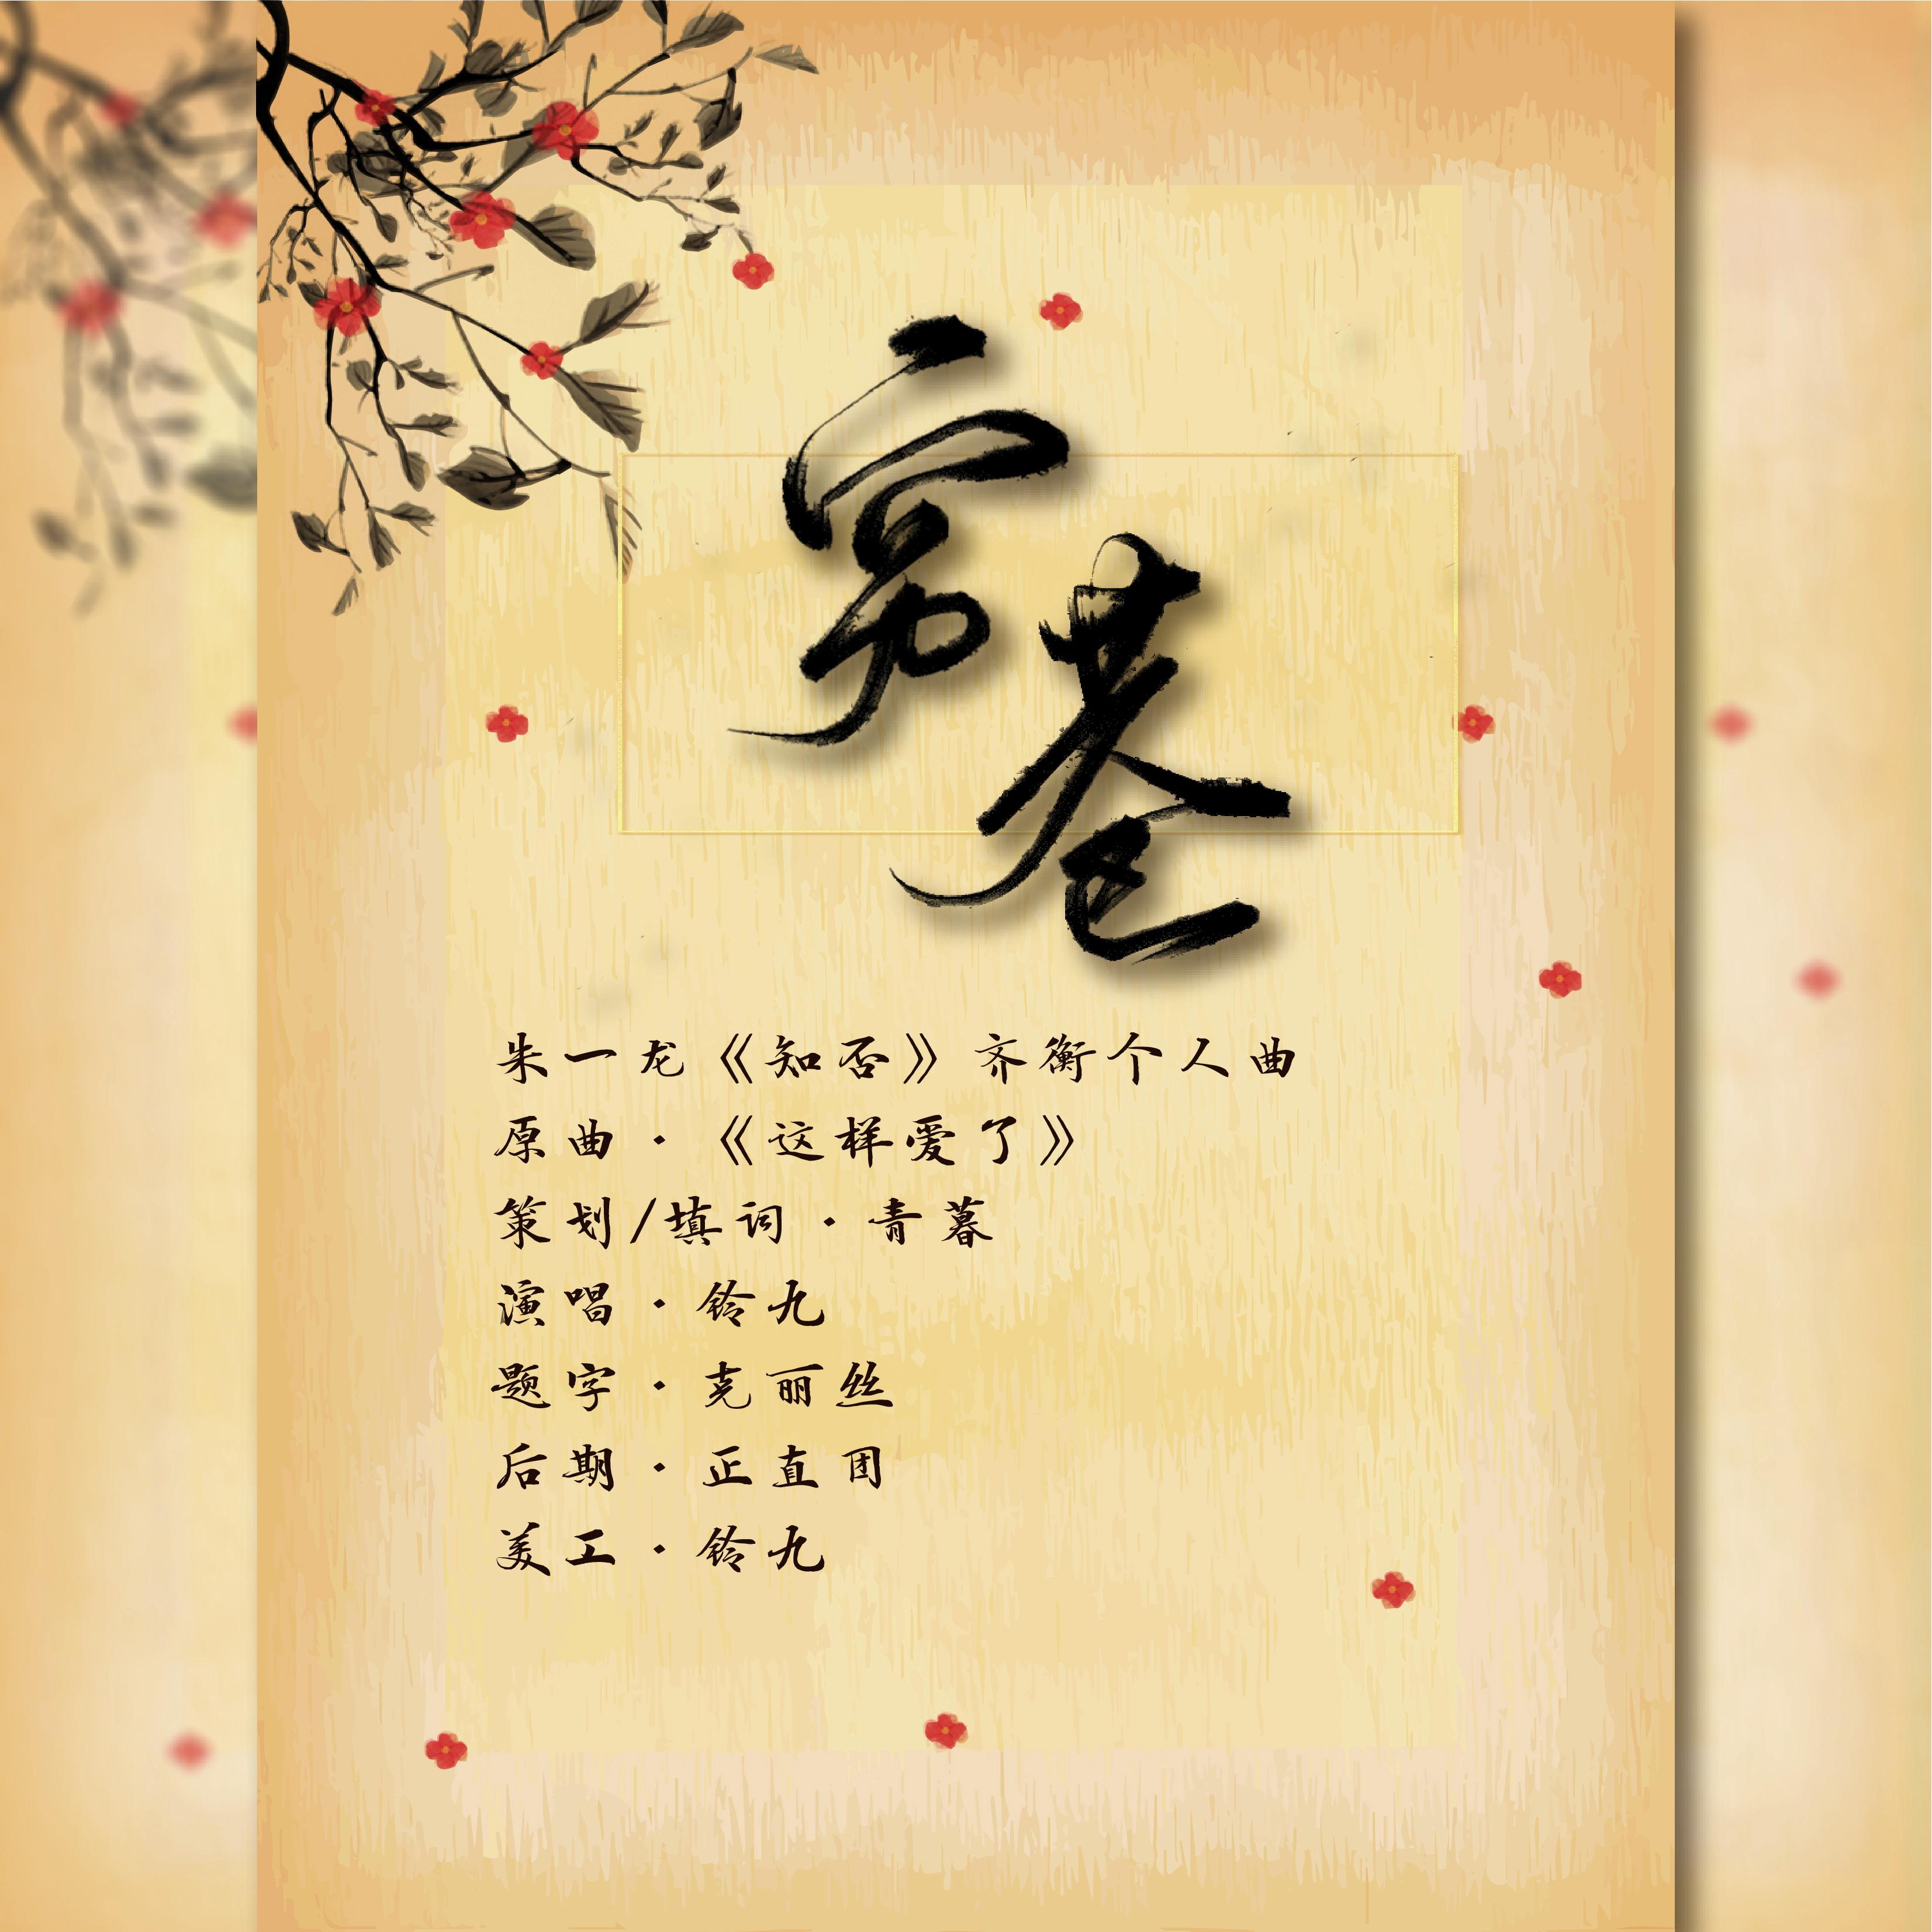 穷巷
朱一龙《知否》齐衡个人曲
原曲·《这样爱了》
策划/填词·青暮
演唱·铃九
题字·克丽丝
后期·正直团
美工·铃九